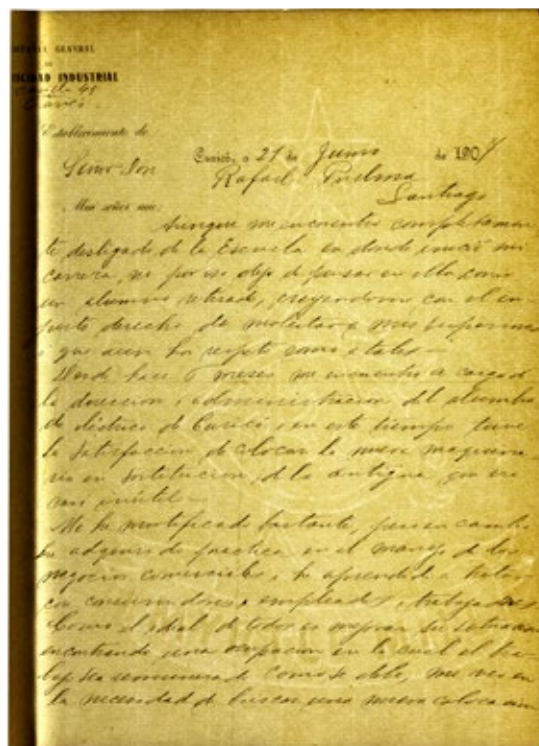 MPAÑIA GENERAL
DE
TRICIDAD INDUSTRIAL
Casilla 48
Curicó
Establecimiento de
Curicó, a 21 de Junio de 1904
Señor Don Rafael
Santiago
Mui señor mio:
Aunque me encuentro completamen
te desligado de la Escuela en donde inicié mi
carrera, no por eso dejo de pensar en ella como
un alumno retirado, creyéndome con el
derecho de molestar a mis superiores
i que aun los respeto como a tales—
Desde hace 6 meses me encuentro a cargo de
la direccion i administracion del alumbra
do eléctrico de Curicó i en este tiempo tuve
la satisfaccion de colocar la nueva maquina
ria en sostitucion de la antigua que era
casi inútil—
Me he mortificado bastante, pero en cambio
he adquirido práctica en el manejo de los
negocios comerciales i he aprendido a tratar
con consumidores, empleados i trabajadores.
Como el ideal de todos es mejorar su situacion
encontrando una ocupacion en la cual el tra-
bajo sea remunerado como se debe, me veo en
la necesidad de buscar una nueva colocacion